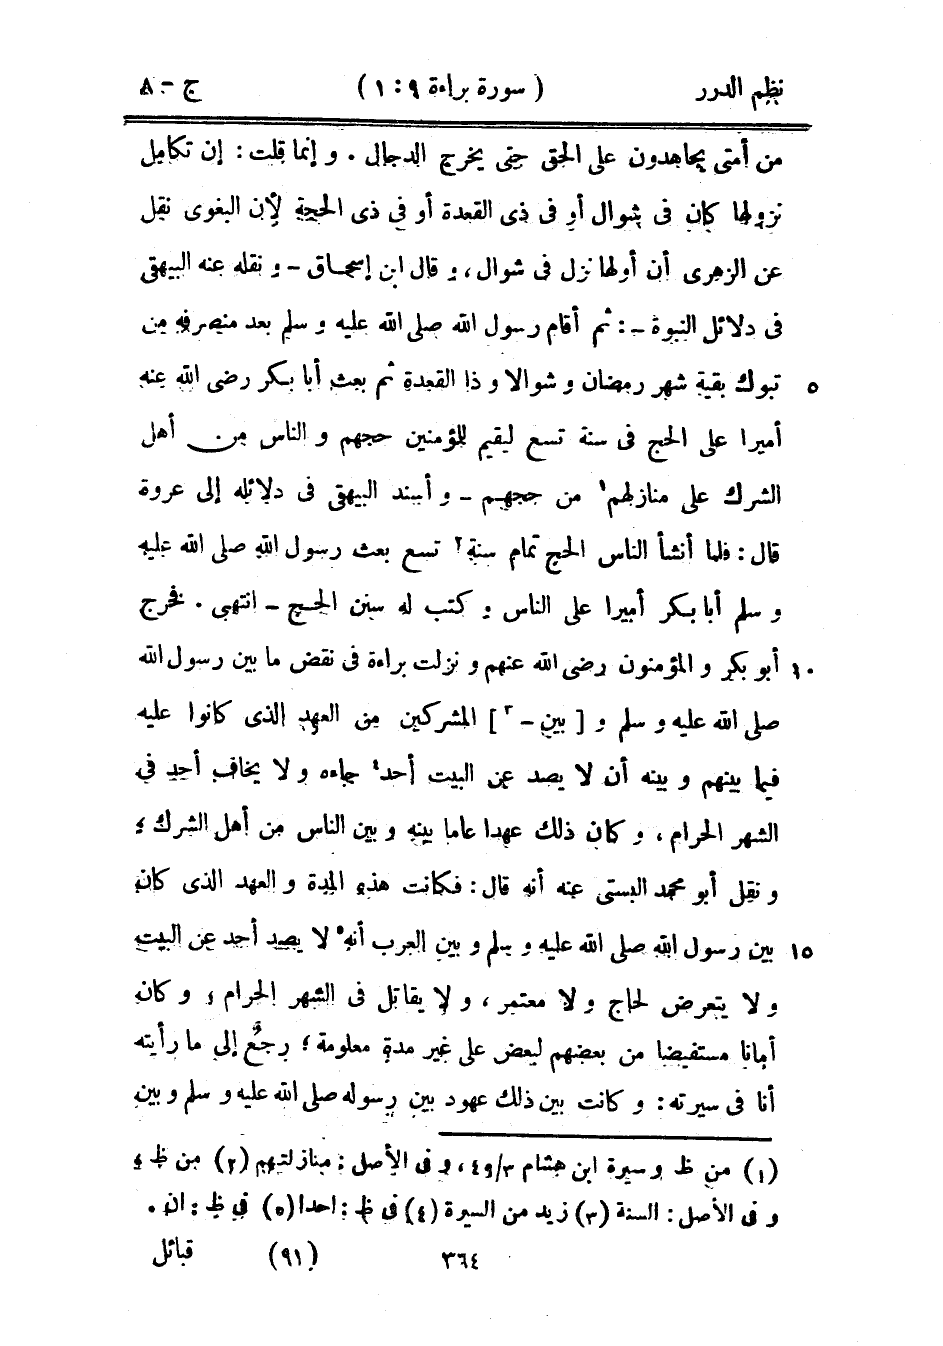 نظم الدرر ( سورة براءة ٩ : ١ ) ج - ٨
من أمتى يجاهدون على الحق حتى يخرج الدجال . و إنما قلت : إن تكامل
نزولها كان فى شوال أو فى ذى القعدة أو فى ذى الحجة لأن البغوى نقل
عن الزهرى أن أولها نزل فى شوال ، و قال ابن إسحاق - و نقله عنه البيهقى
فى دلائل النبوة - : ثم أقام رسول الله صلى الله عليه و سلم بعد منصرفه من
تبوك بقية شهر رمضان و شوالا و ذا القعدة ثم بعث أبا بكر رضى الله عنه ٥
أميرا على الحج فى سنة تسع ليقيم للؤمنين حجهم و الناس من أهل
الشرك على منازلهم١ من حجهم - و أسند البيهقى فى دلائله إلى عروة
قال : فلما أنشأ الناس الحج تمام سنة٢ تسع بعث رسول الله صلى الله عليه
و سلم أبا بكر أميرا على الناس و كتب له سنن الحج - انتهى . فخرج
أبو بكر و المؤمنون رضى الله عنهم و نزلت براءة فى نقض ما بين رسول الله ١٠
صلى الله عليه و سلم و [ بين - ٣ ] المشركين من العهد الذى كانوا عليه
فيما بينهم و بينه أن لا يصد عن البيت أحد٤ جاءه و لا يخاف أحد فى
الشهر الحرام ، و كان ذلك عهدا عاما بينه و بين الناس من أهل الشرك ؛
و نقل أبو محمد البستى عنه أنه قال : فكانت هذه المدة و العهد الذى كان
بين رسول الله صلى الله عليه و سلم و بين العرب أنه٥ لا يصد أحد عن البيت ١٥
و لا يتعرض لحاج و لا معتمر ، و لا يقاتل فى الشهر الحرام ، و كان
أمانا مستفيضا من بعضهم لبعض على غير مدة معلومة ؛ رجعٌ إلى ما رأيته
أنا فى سيرته : و كانت بين ذلك عهود بين رسوله صلى الله عليه و سلم و بين
(١) من ظ و سيرة ابن هشام ٣/و٤ ، و فى الأصل : منازلتهم (٢) من ظ ،
و فى الأصل : السنة (٣) زيد من السيرة (٤) فى ظ : احدا (٥) فى ظ : ان .
٣٦٤ (٩١) قبائل